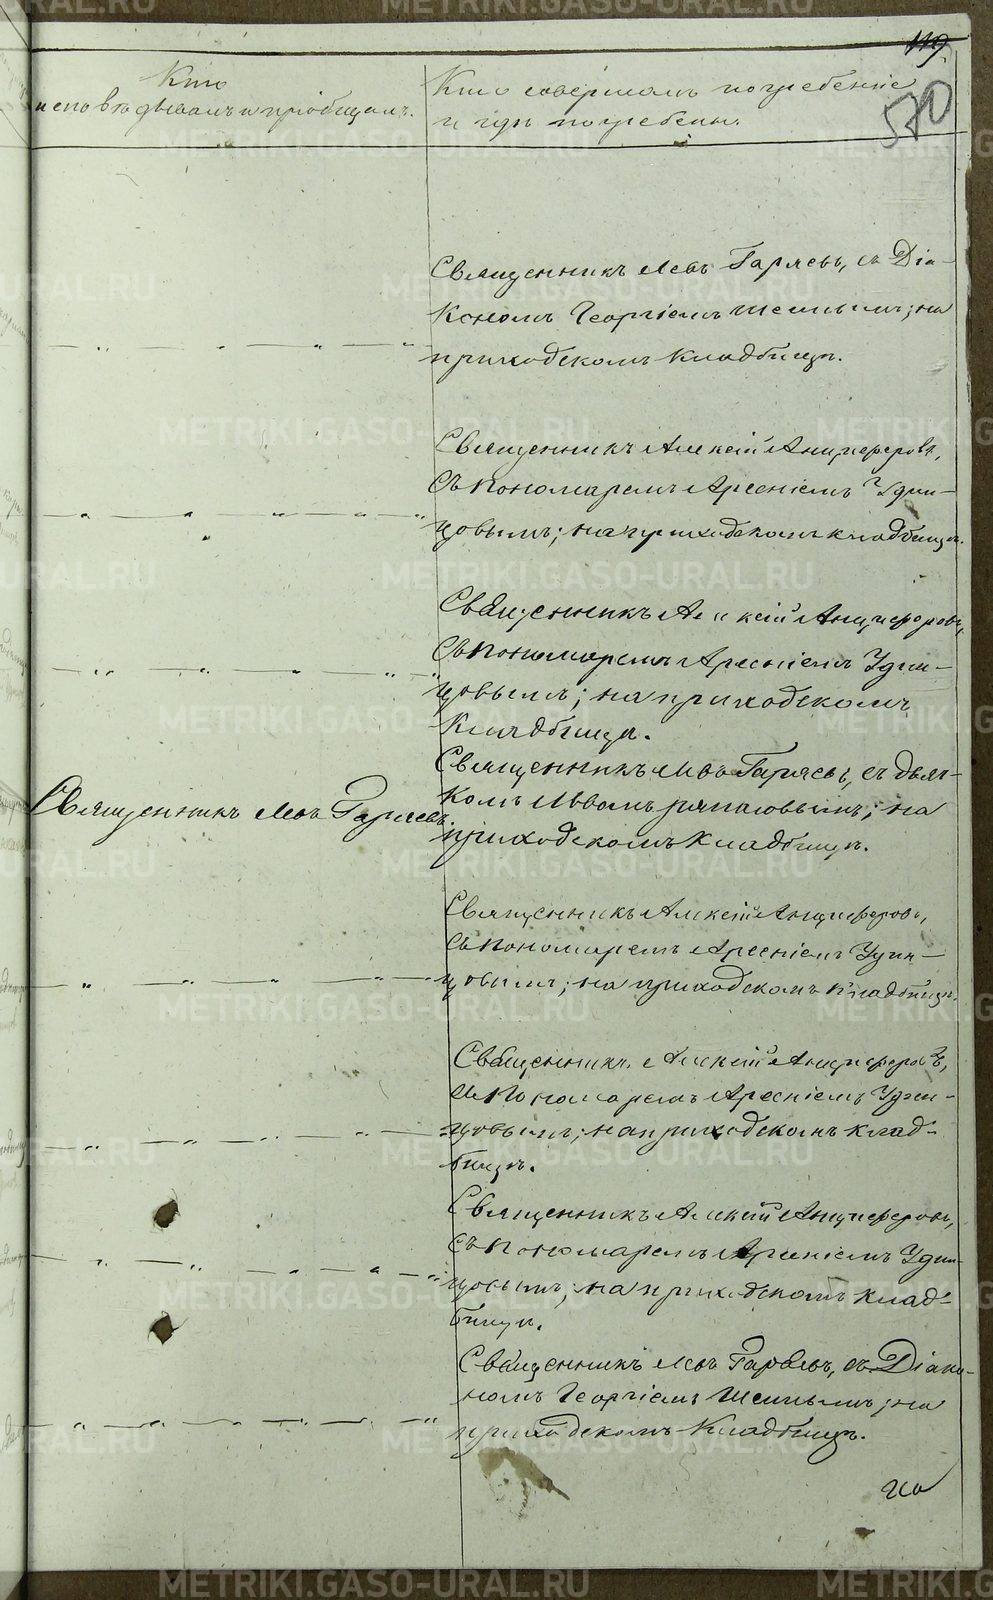 119.
570
Кто
исповѣдывалъ и пріобщалъ.
Кто совершалъ погребеніе
и гдѣ погребены.
Священникъ Левъ Гаряевъ, съ Діа-
кономъ Георгіемъ; на
приходскомъ кладбищѣ.
Священникъ Алексій Анциферовъ,
съ пономаремъ Арсеніемъ Удин-
цовымъ; на приходскомъ кладбищѣ.
Священникъ Алексій Анциферовъ,
съ пономаремъ Арсеніемъ Удин-
цовымъ; на приходскомъ
кладбищѣ.
Священникъ Левъ Гаряевъ, съ дьяч-
комъ Львомъ; на
приходскомъ кладбищѣ.
Священникъ Левъ Гаряевъ.
Священникъ Алексій Анциферовъ,
съ пономаремъ Арсеніемъ Удин-
цовымъ; на приходскомъ кладбищѣ.
Священникъ Алексій Анциферовъ,
съ пономаремъ Арсеніемъ Удин-
цовымъ; на приходскомъ клад-
бищѣ.
Священникъ Алексій Анциферовъ,
съ пономаремъ Арсеніемъ Удин-
цовымъ; на приходскомъ клад-
бищѣ.
Священникъ Левъ Гаряевъ, съ Діако-
номъ Георгіемъ; на
приходскомъ кладбищѣ.
METRIKI.GASO-URAL.RU